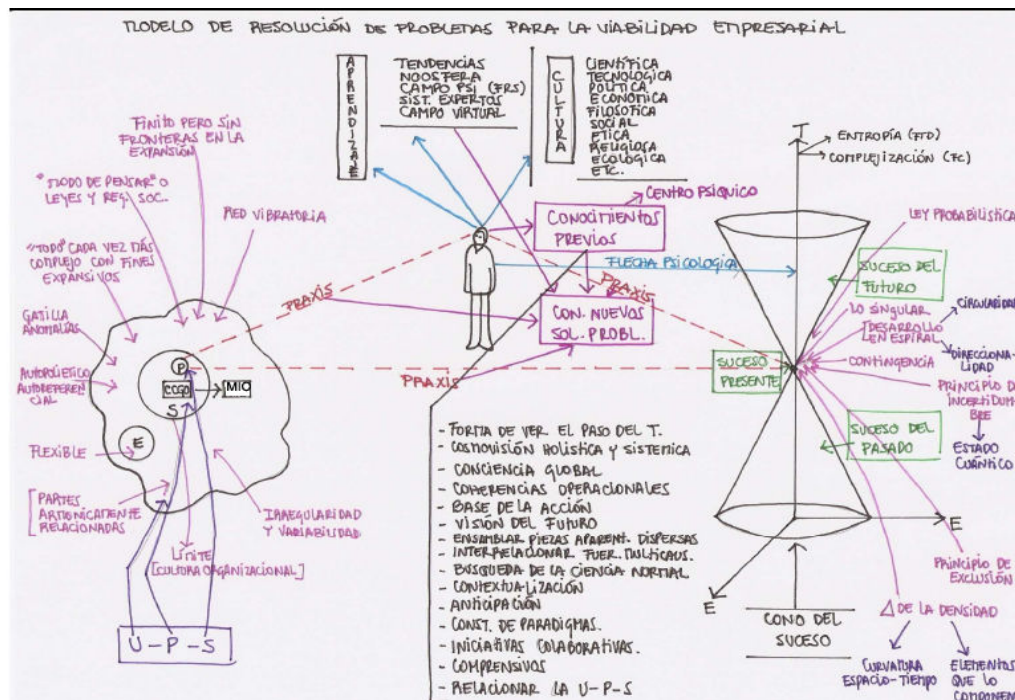 MODELO DE RESOLUCIÓN DE PROBLEMAS PARA LA VIABILIDAD EMPRESARIAL
APRENDIZAJE
TENDENCIAS
NOOSFERA
CAMPO PSI (FRS)
SIST. EXPERTOS
CAMPO VIRTUAL
CULTURA
CIENTÍFICA
TECNOLÓGICA
POLÍTICA
ECONÓMICA
FILOSÓFICA
SOCIAL
ETICA
RELIGIOSA
ECOLÓGICA
ETC.
T
ENTROPÍA (FTD)
COMPLEJIZACIÓN (FC)
FINITO PERO SIN
FRONTERAS EN LA
EXPANSIÓN
"MODO DE PENSAR" O
LEYES Y REG. SOC.
RED VIBRATORIA
"TODO" CADA VEZ MÁS
COMPLEJO CON FINES
EXPANSIVOS
GATILLA
ANOMALÍAS
AUTOPOIÉTICO
AUTOREFEREN
CIAL
P
COGO
MIO
S
E
FLEXIBLE
[PARTES
ARMONICAMENTE
RELACIONADAS
IRREGULARIDAD
Y VARIABILIDAD
LÍMITE
[CULTURA ORGANIZACIONAL]
U-P-S
CENTRO PSIQUICO
CONOCIMIENTOS
PREVIOS
FLECHA PSICOLOGICA
PRAXIS
PRAXIS
CON. NUEVOS
SOL. PROBL.
PRAXIS
- FORMA DE VER EL PASO DEL T.
- COSMOVISIÓN HOLISTICA Y SISTEMICA
- CONCIENCIA GLOBAL
- COHERENCIAS OPERACIONALES
- BASE DE LA ACCIÓN
- VISIÓN DEL FUTURO
- ENSAMBLAR PIEZAS APARENT. DISPERSAS
- INTERRELACIONAR FUER. MULTICAUS.
- BÚSQUEDA DE LA CIENCIA NORMAL
- CONTEXTUALIZACIÓN
- ANTICIPACIÓN
- CONST. DE PARADIGMAS.
- INICIATIVAS COLABORATIVAS.
- COMPRENSIVOS
- RELACIONAR LA U-P-S
LEY PROBABILISTICA
SUCESO DEL
FUTURO
LO SINGULAR
[DESARROLLO
EN ESPIRAL
CIRCULARIDAD
DIRECCIONA-
LIDAD
CONTINGENCIA
SUCESO
PRESENTE
PRINCIPIO DE
INCERTIDUM-
BRE
SUCESO DEL
PASADO
ESTADO
CUÁNTICO
E
E
PRINCIPIO DE
EXCLUSIÓN
CONO DEL
SUCESO
Δ DE LA DENSIDAD
CURVATURA
ESPACIO-TIEMPO
ELEMENTOS
QUE LO
COMPONEN